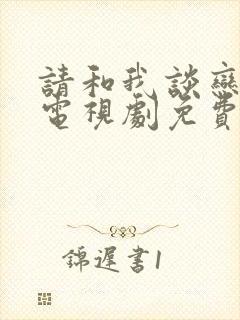 請和我談戀
電視劇免費
錦遲書1